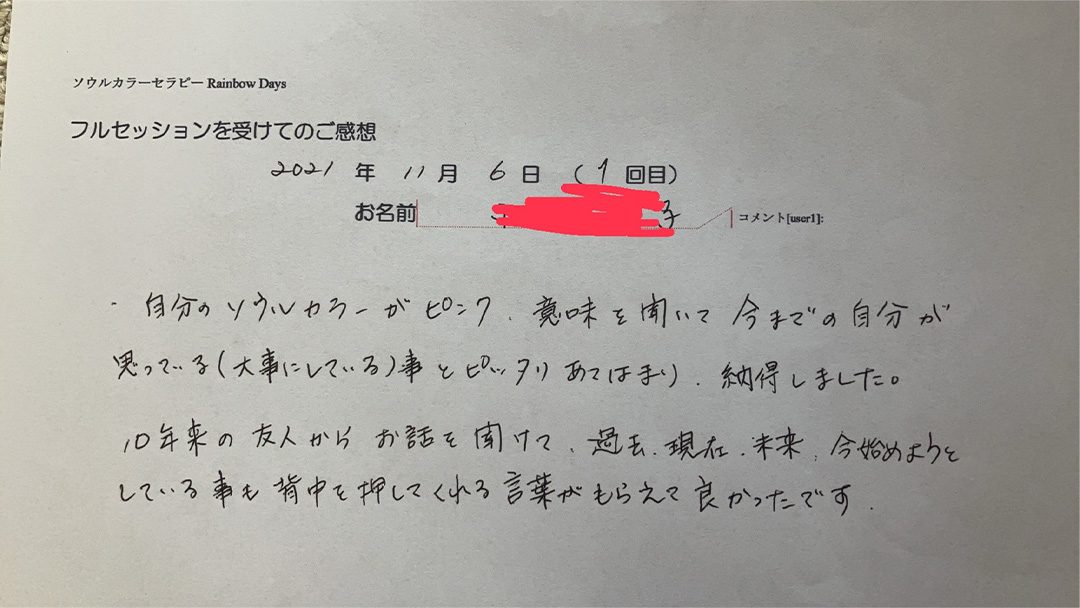 ソウルカラーセラピー Rainbow Days
フルセッションを受けてのご感想
2021 年 11 月 6 日 (1 回目)
お名前 子 コメント[user1]:
・自分のソウルカラーがピンク、意味を聞いて今までの自分が
思っている(大事にしている)事とピッタリあてはまり、納得しました。
10年来の友人からお話を聞けて、過去、現在、未来、今始めようと
している事も背中を押してくれる言葉がもらえて良かったです.